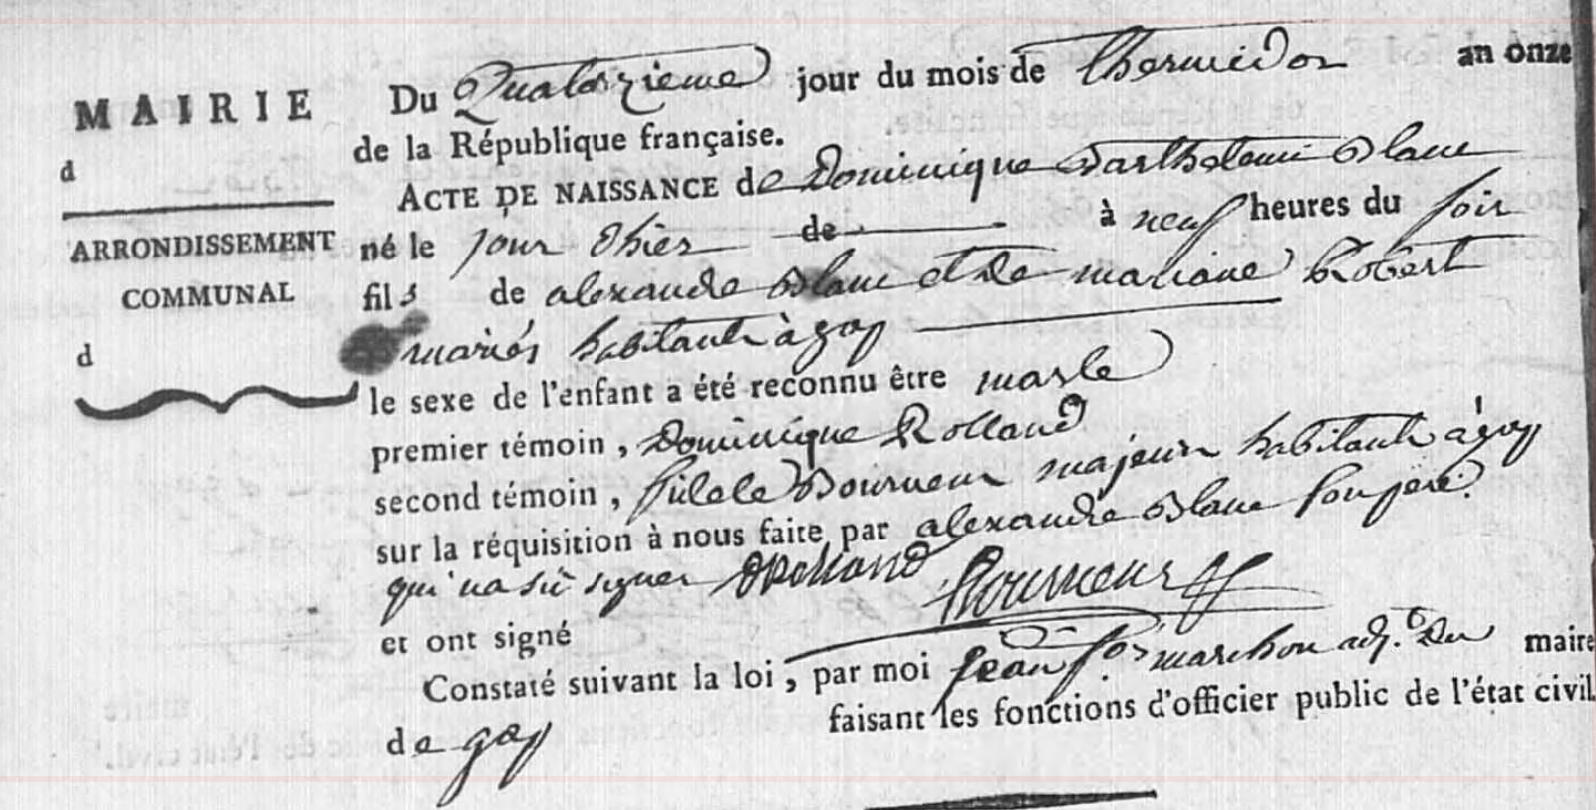 MAIRIE
d
ARRONDISSEMENT
COMMUNAL
d
Du Quatorzieme jour du mois de thermidor an onze
de la République française.
ACTE DE NAISSANCE de Dominique Barthelemi Blanc
né le jour d'hier de à neuf heures du soir
fils de alexandre Blanc et De mariane Robert
mariés habitants à gap
le sexe de l'enfant a été reconnu être masle
premier témoin, Dominique Rolland
second témoin, majeurs habitants à gap
sur la réquisition à nous faite par alexandre Blanc son pere.
qui na sù signer DRolland
et ont signé
Constaté suivant la loi, par moi jean fois marchon adj.t Du maire
de gap faisant les fonctions d'officier public de l'état civil.